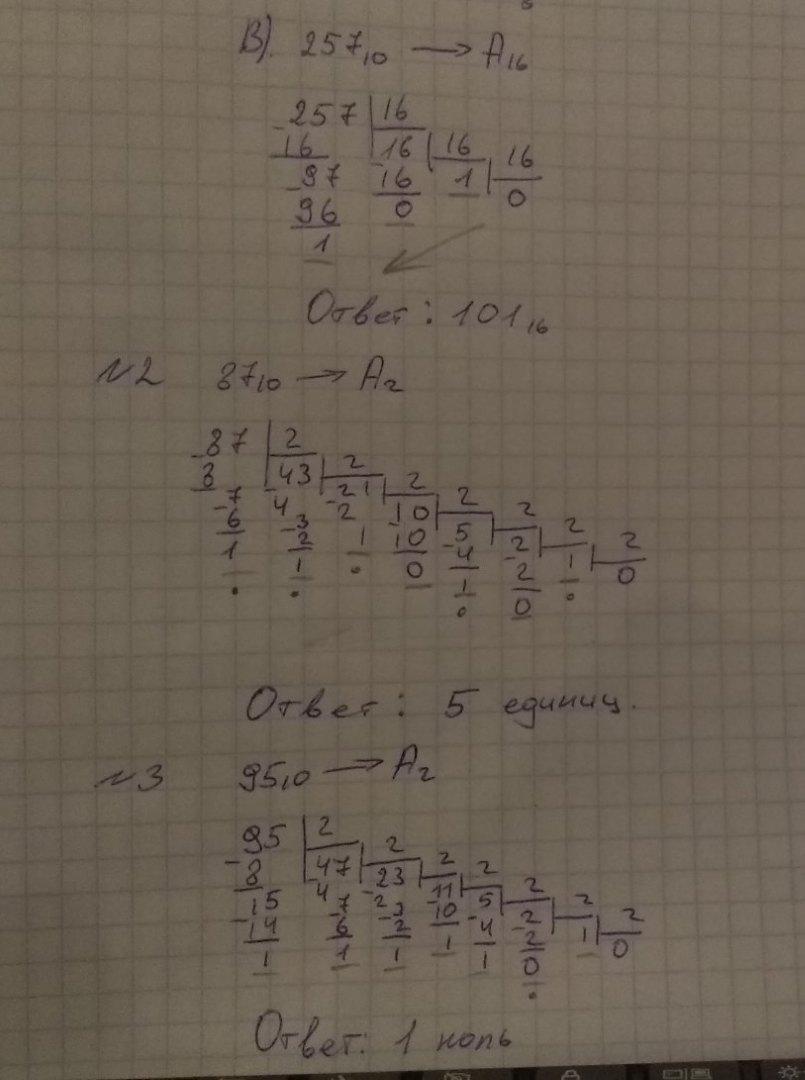 В). 257₁₀ → A₁₆
257 16
16 16 16 16
97 16 1 0
96 0
1
Ответ: 101₁₆
№2 87₁₀ → A₂
87 2
8 43 2
7 4 21 2
6 3 2 10 2
1 2 1 10 5 2
1 0 4 2 2
1 2 1 2
0 0
Ответ: 5 единиц.
№3 95₁₀ → A₂
95 2
8 47 2
15 4 23 2
14 7 2 11 2
1 6 3 10 5 2
1 2 1 4 2 2
1 1 2 1 2
0 0
Ответ: 1 ноль